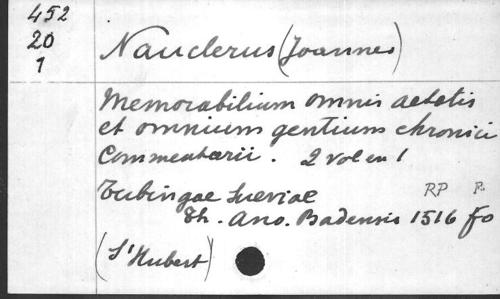 452
20
1
Nauclerus (Joannes)
Memorabilium omnis aetatis
et omnium gentium chronici
Commentarii. 2 vol en 1
Tubingae Sueviae RP P.
Th. Ano. Badensis 1516 fo
(St Hubert)